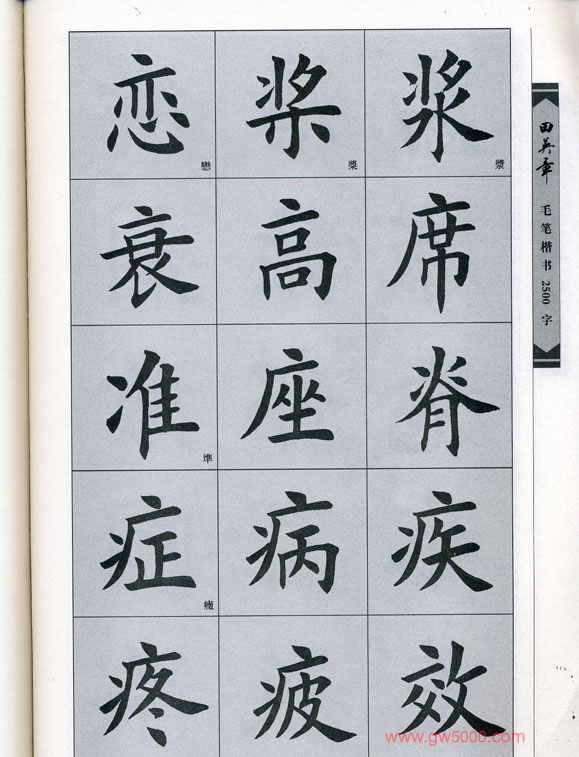 恋 桨 浆
戀 槳 漿
衰 高 席
准 座 脊
準
症 病 疾
癥
疼 疲 效
田英章 毛笔楷书2500字
www.gw5000.com